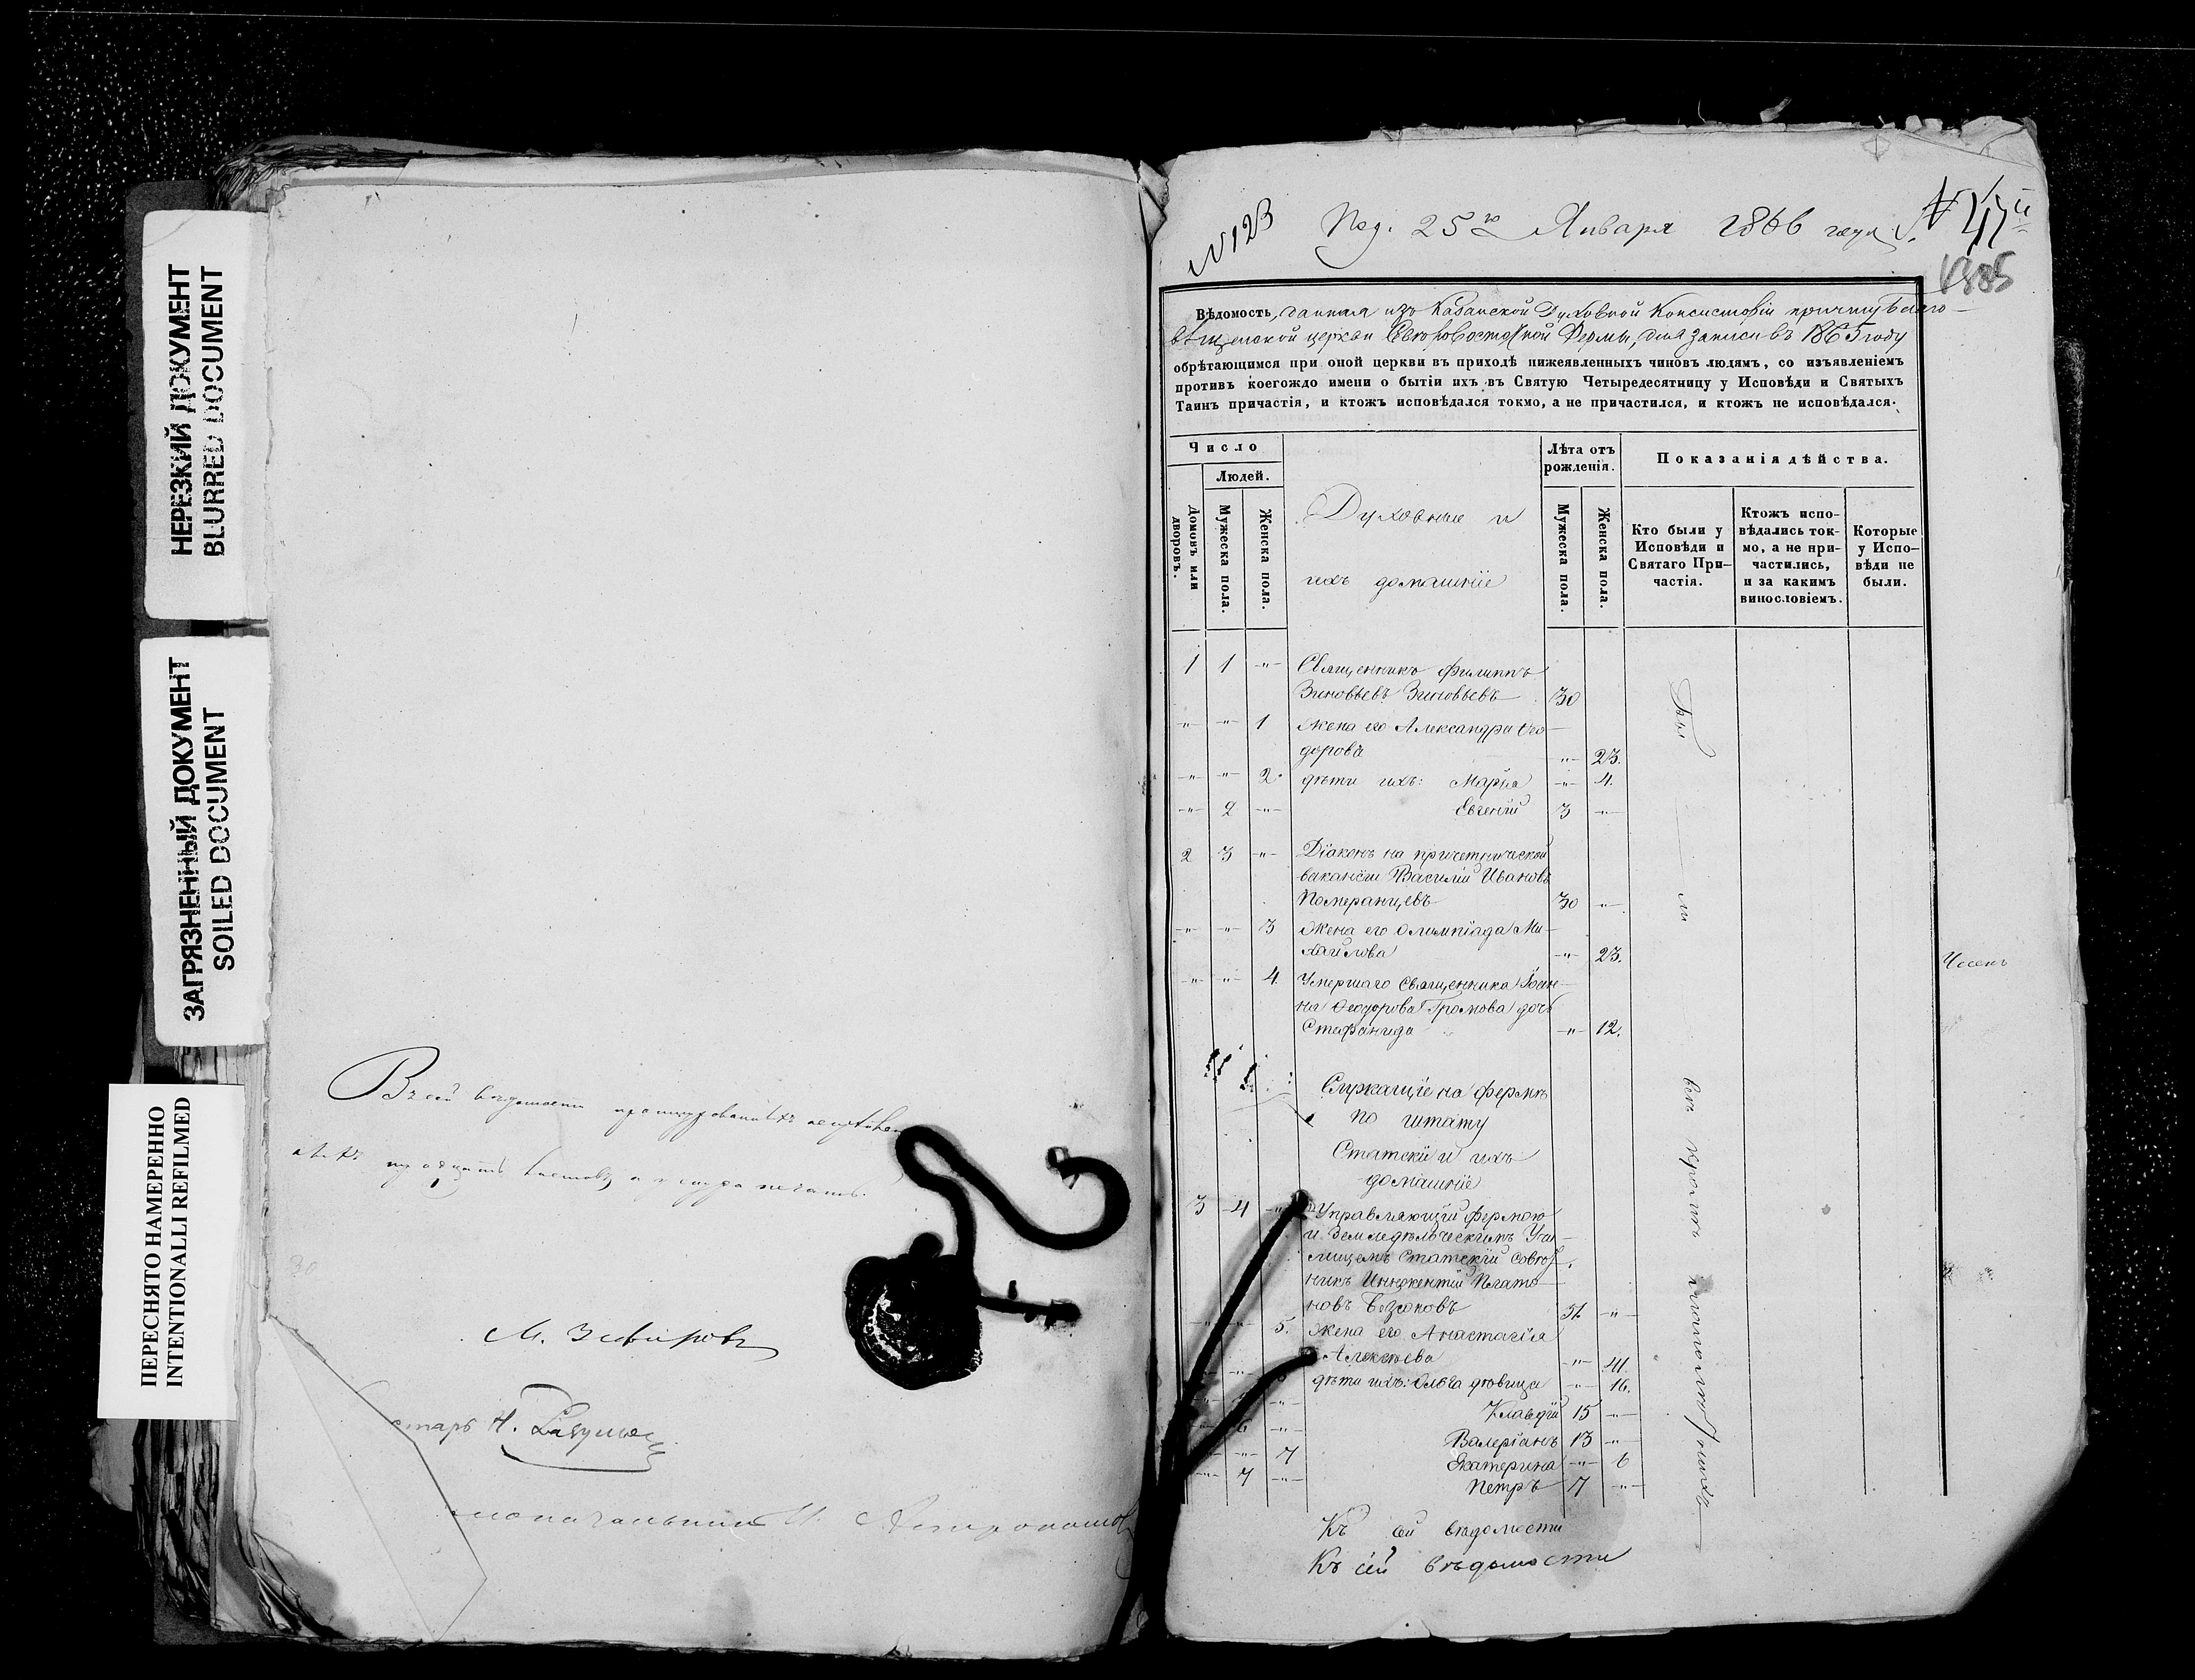 НЕРЕЗКИЙ ДОКУМЕНТ
BLURRED DOCUMENT
ЗАГРЯЗНЕННЫЙ ДОКУМЕНТ
SOILED DOCUMENT
ПЕРЕСНЯТО НАМЕРЕННО
INTENTIONALLI REFILMED
Въ сей вѣдомости
листовъ
М. Зефировъ
№ 123
25го Января 1866 года
Вѣдомость, данная изъ Казанской Духовной Консисторіи причту Благо-
вѣщенской церкви Сѣверовосточной Фермы, для записи въ 1865 году
обрѣтающимся при оной церкви въ приходѣ нижеявленныхъ чиновъ людямъ, со изъявленіемъ
противъ коегождо имени о бытіи ихъ въ Святую Четыредесятницу у Исповѣди и Святыхъ
Таинъ причастія, и ктожъ исповѣдался токмо, а не причастился, и ктожъ не исповѣдался.
Число
Людей.
Домовъ или дворовъ.
Мужеска пола.
Женска пола.
Духовные и
ихъ домашніе
Лѣта отъ
рожденія.
Мужеска пола.
Женска пола.
Показанія дѣйства.
Кто были у
Исповѣди и
Святаго При-
частія.
Ктожъ испо-
вѣдались ток-
мо, а не при-
частились,
и за какимъ
винословіемъ.
Которые
у Испо-
вѣди не
были.
1 1 -"- Священникъ Филиппъ
Зиновьевъ Зиновьевъ 30
-"- -"- 1 Жена его Александра Ѳео-
дорова -"- 23.
-"- -"- 2. дѣти ихъ: Марія -"- 4.
-"- 2 -"- Евгеній 3 -"-
2 3 -"- Діаконъ на причетнической
вакансіи Василій Ивановъ
Померанцевъ 30 -"-
-"- -"- 3 Жена его Олимпіада Ми-
хайлова -"- 23.
-"- -"- 4. Умершаго Священника Іоан-
на Ѳеодорова Громова дочь
Стефанида -"- 12.
Служащіе на фермѣ
по штату
Статскіи и ихъ
домашніе
3 4 -"- Управляющій фермою
и Земледѣльческимъ Учи-
лищемъ Статскій Совѣт-
никъ Иннокентій Плато-
новъ Безсоновъ 51. -"-
-"- -"- 5. Жена его Анастасія
Алексѣева -"- 41.
дѣти ихъ: Ольга дѣвица -"- 16.
Клавдій 15 -"-
6 -"- Валеріанъ 13 -"-
-"- 7 Екатерина -"- 6
-"- 7 -"- Петръ 7 -"-
Были
всѣ кромѣ малолѣтнихъ
Къ сей вѣдомости
Къ сей вѣдомости